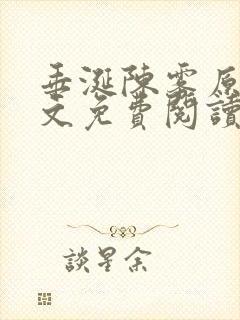 垂涎陳雾原
文免費閱讀
談星余